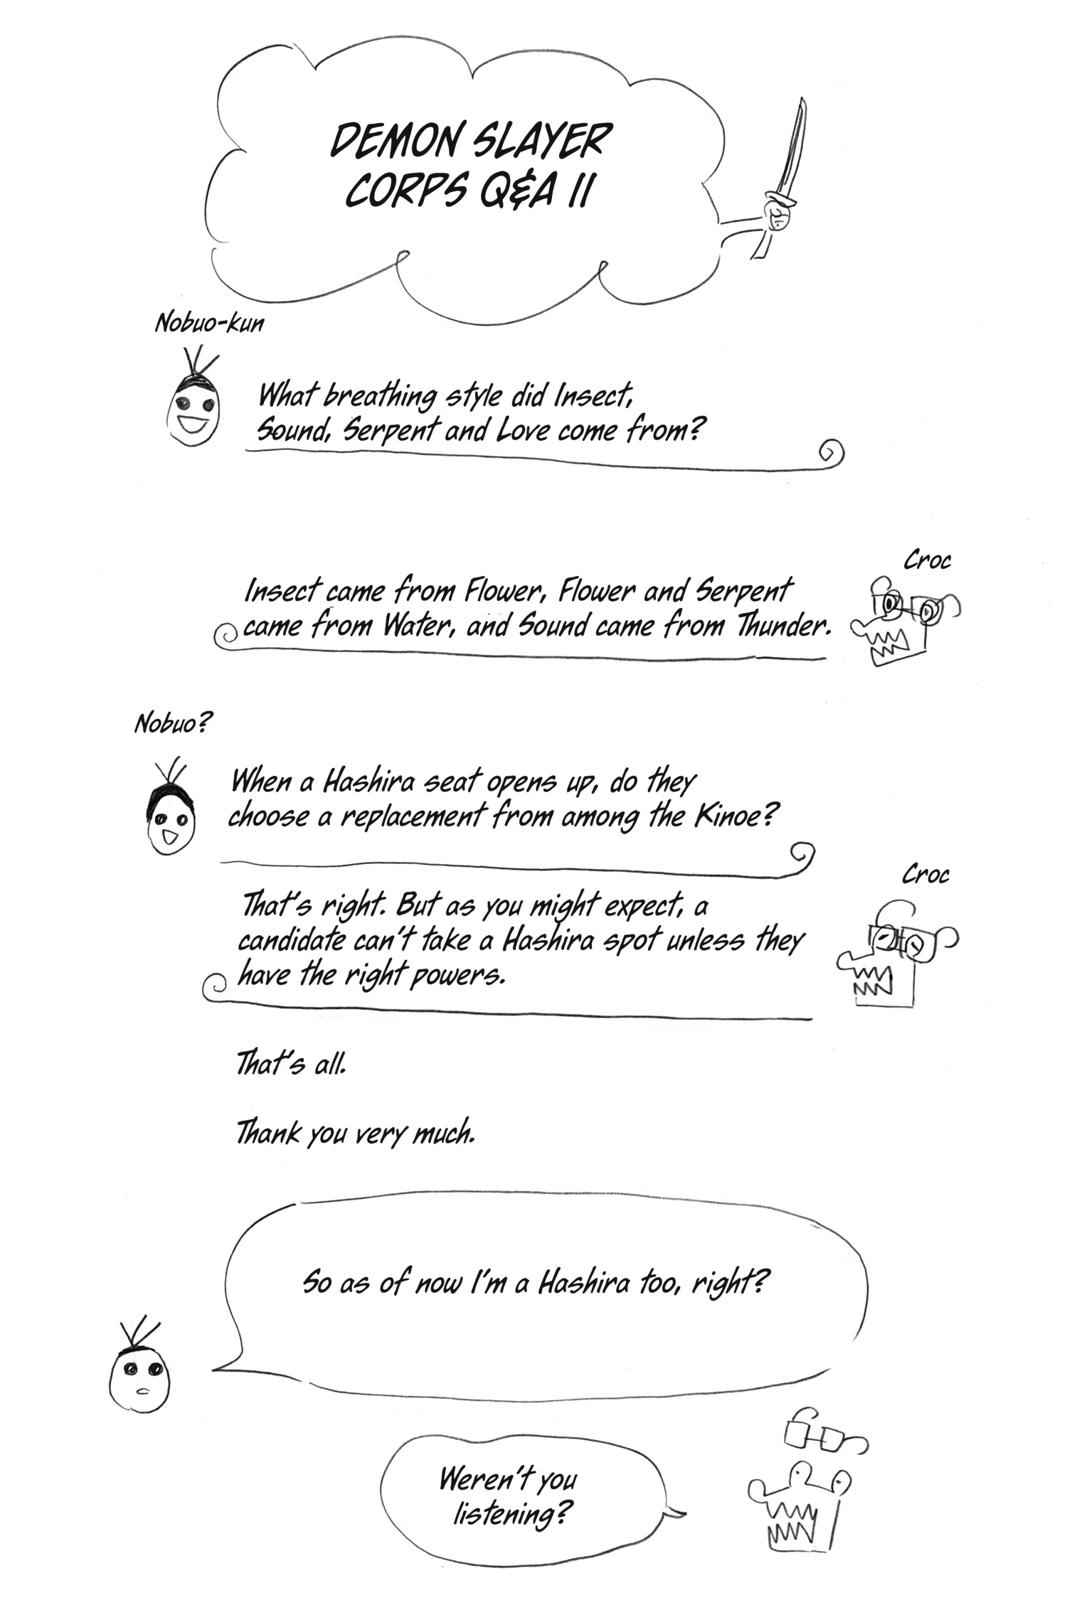 DEMON SLAYER
CORPS Q&A II
Nobuo-kun
What breathing style did Insect,
Sound, Serpent and Love come from?
Croc
Insect came from Flower, Flower and Serpent
came from Water, and Sound came from Thunder.
Nobuo?
When a Hashira seat opens up, do they
choose a replacement from among the Kinoe?
Croc
That's right. But as you might expect, a
candidate can't take a Hashira spot unless they
have the right powers.
That's all.
Thank you very much.
So as of now I'm a Hashira too, right?
Weren't you
listening?